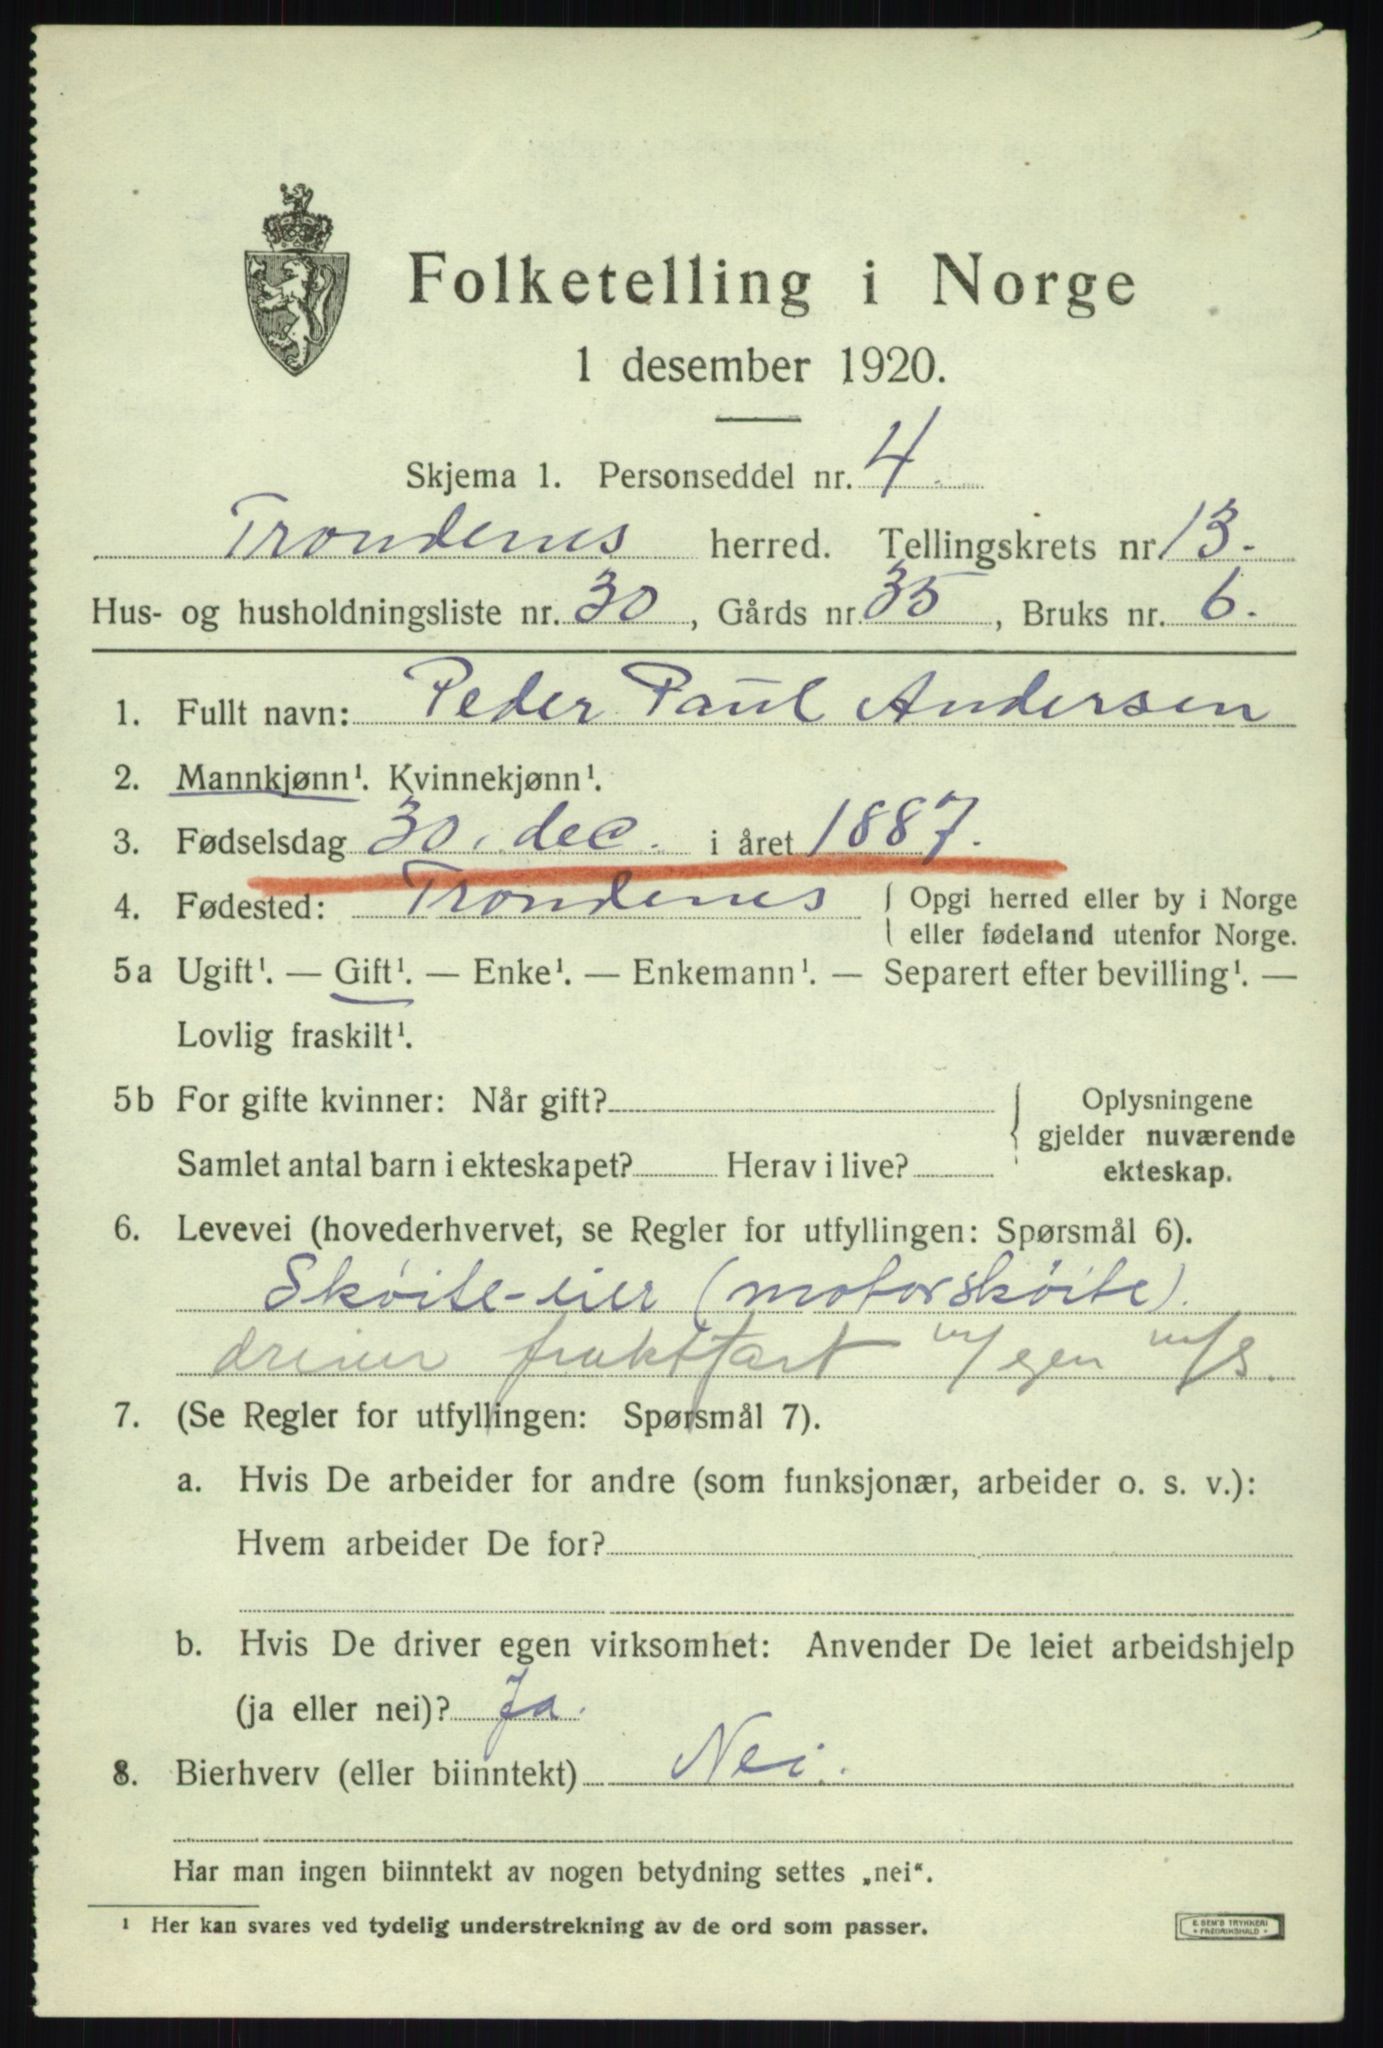 Folketelling i Norge
1 desember 1920.
Skjema 1. Personseddel nr. 4.
Trondenes herred. Tellingskrets nr. 13.
Hus- og husholdningsliste nr. 30, Gårds nr. 35, Bruks nr. 6.
1. Fullt navn: Peder Paul Andersen
2. Mannkjønn¹. Kvinnekjønn¹.
3. Fødselsdag 30. dec. i året 1887.
4. Fødested: Trondenes { Opgi herred eller by i Norge
eller fødeland utenfor Norge.
5a Ugift¹. — Gift¹. — Enke¹. — Enkemann¹. — Separert efter bevilling¹. —
Lovlig fraskilt¹.
5b For gifte kvinner: Når gift? { Oplysningene
gjelder nuværende
Samlet antal barn i ekteskapet? Herav i live? ekteskap.
6. Levevei (hovederhvervet, se Regler for utfyllingen: Spørsmål 6).
Skøite-eier (motorskøite).
driver fraktfart m/egen m/s.
7. (Se Regler for utfyllingen: Spørsmål 7).
a. Hvis De arbeider for andre (som funksjonær, arbeider o. s. v.):
Hvem arbeider De for?
b. Hvis De driver egen virksomhet: Anvender De leiet arbeidshjelp
(ja eller nei)? Ja.
8. Bierhverv (eller biinntekt) Nei.
Har man ingen biinntekt av nogen betydning settes „nei“.
¹ Her kan svares ved tydelig understrekning av de ord som passer.
E. SEM'S TRYKKERI
• FREDRIKSHALD •